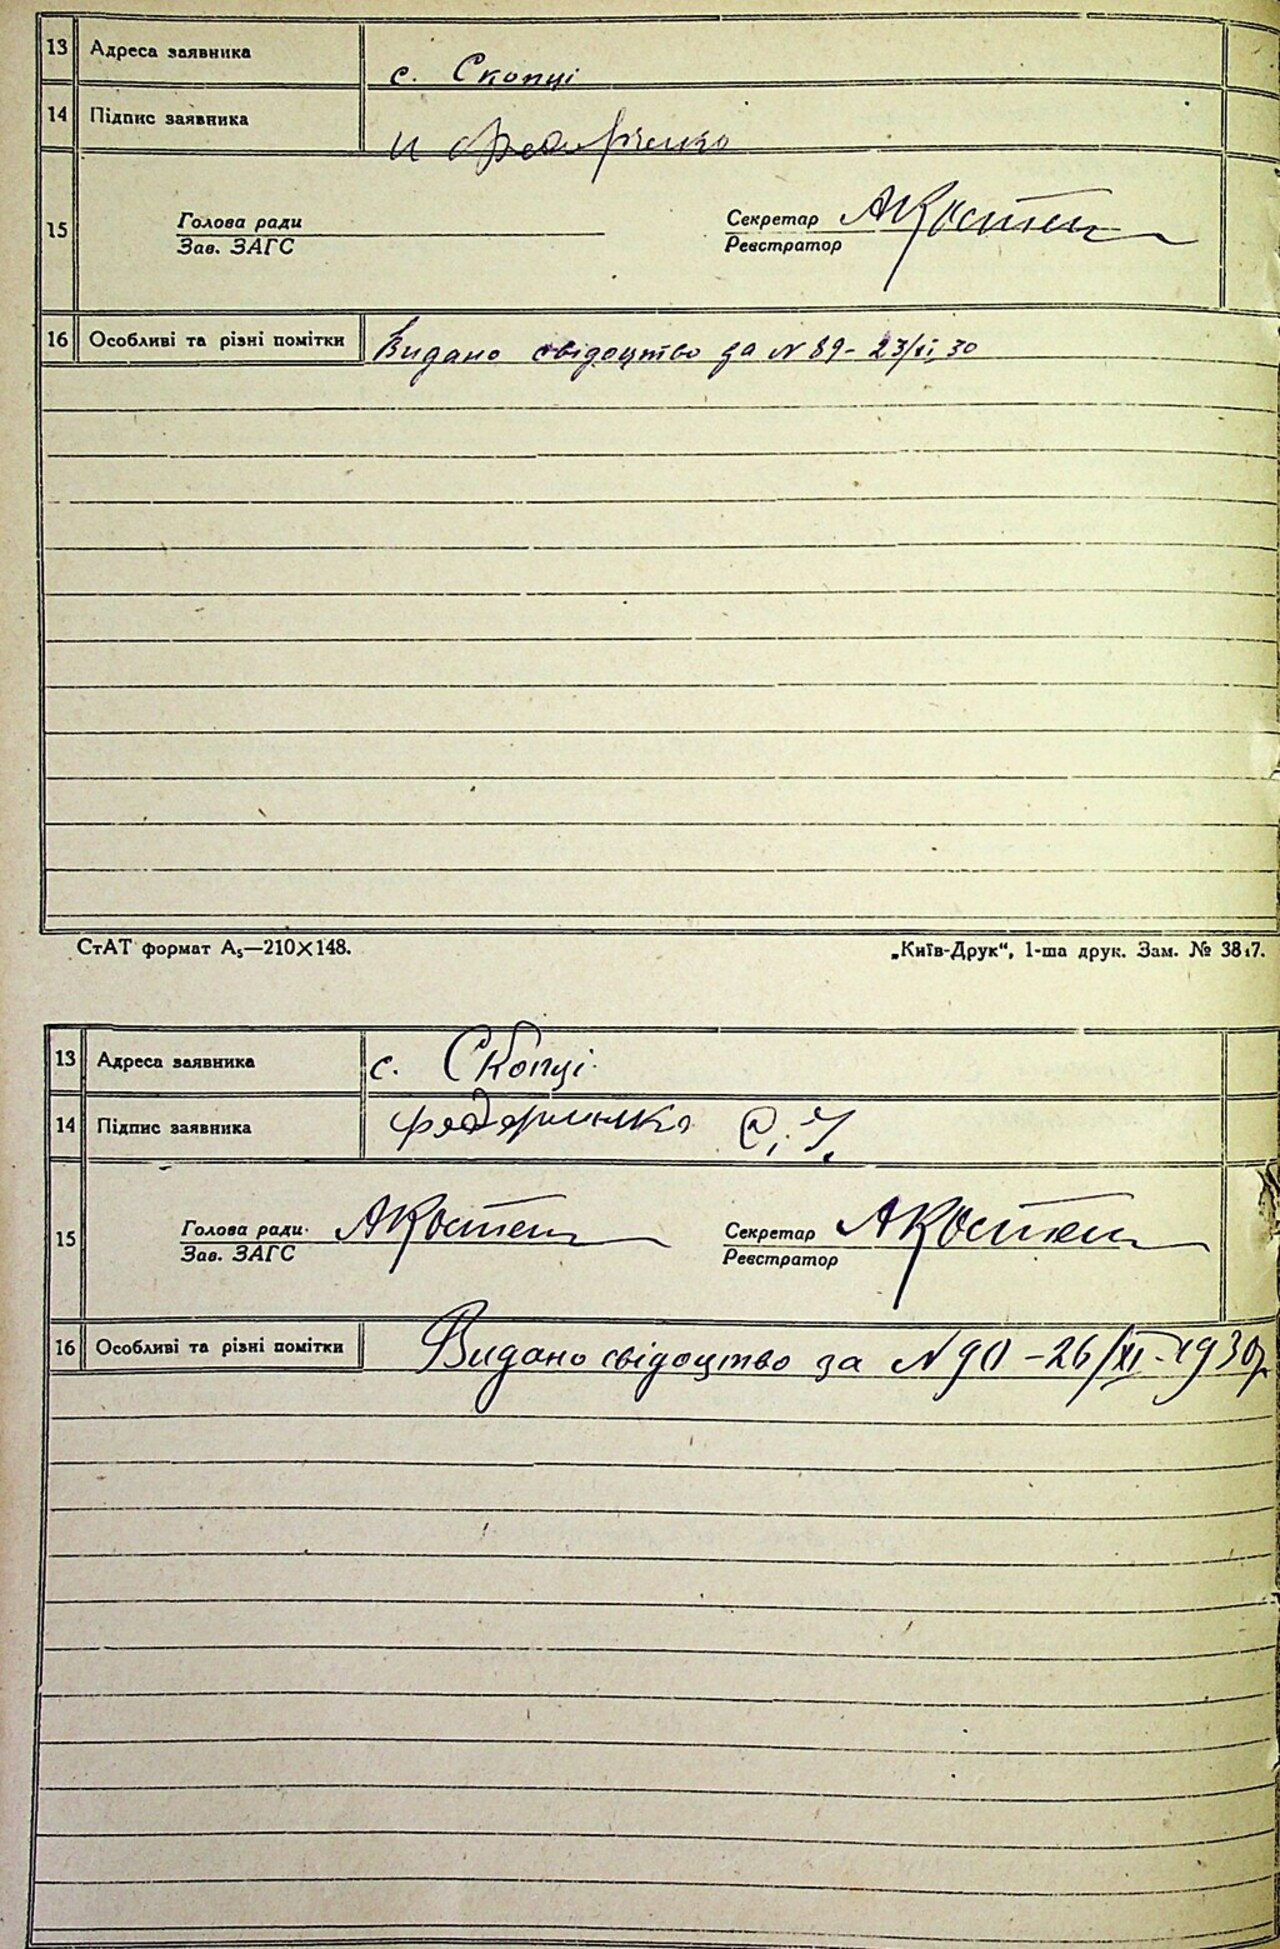 13 Адреса заявника с. Скопці
14 Підпис заявника
15 Голова ради Секретар АКостен
Зав. ЗАГС Реєстратор
16 Особливі та різні помітки Видано свідоцтво за N 89 - 23/XI 30
СтАТ формат А₅—210×148. „Київ-Друк“, 1-ша друк. Зам. № 3817.
13 Адреса заявника с. Скопці
14 Підпис заявника
15 Голова ради АКостен Секретар АКостен
Зав. ЗАГС Реєстратор
16 Особливі та різні помітки Видано свідоцтво за N 90 - 26/XI - 1930р.